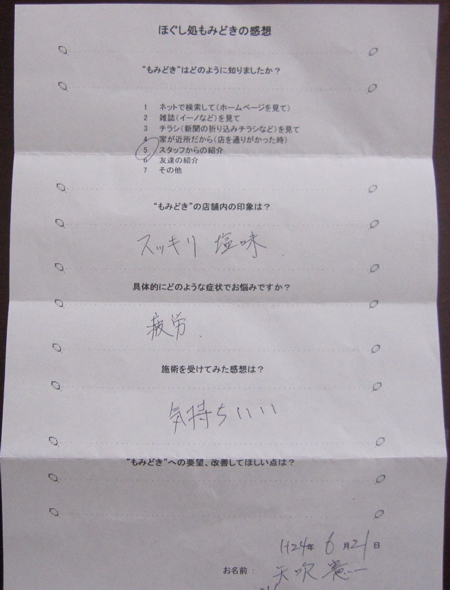 ほぐし処もみどきの感想
"もみどき"はどのように知りましたか？
1 ネットで検索して(ホームページを見て)
2 雑誌(イーノなど)を見て
3 チラシ(新聞の折り込みチラシなど)を見て
4 家が近所だから(店を通りがかった時)
5 スタッフからの紹介
6 友達の紹介
7 その他
"もみどき"の店舗内の印象は？
スッキリ 塩味
具体的にどのような症状でお悩みですか？
疲労
施術を受けてみた感想は？
気持ちいい
"もみどき"への要望、改善してほしい点は？
H24年 6月21日
お名前 矢吹 憲一